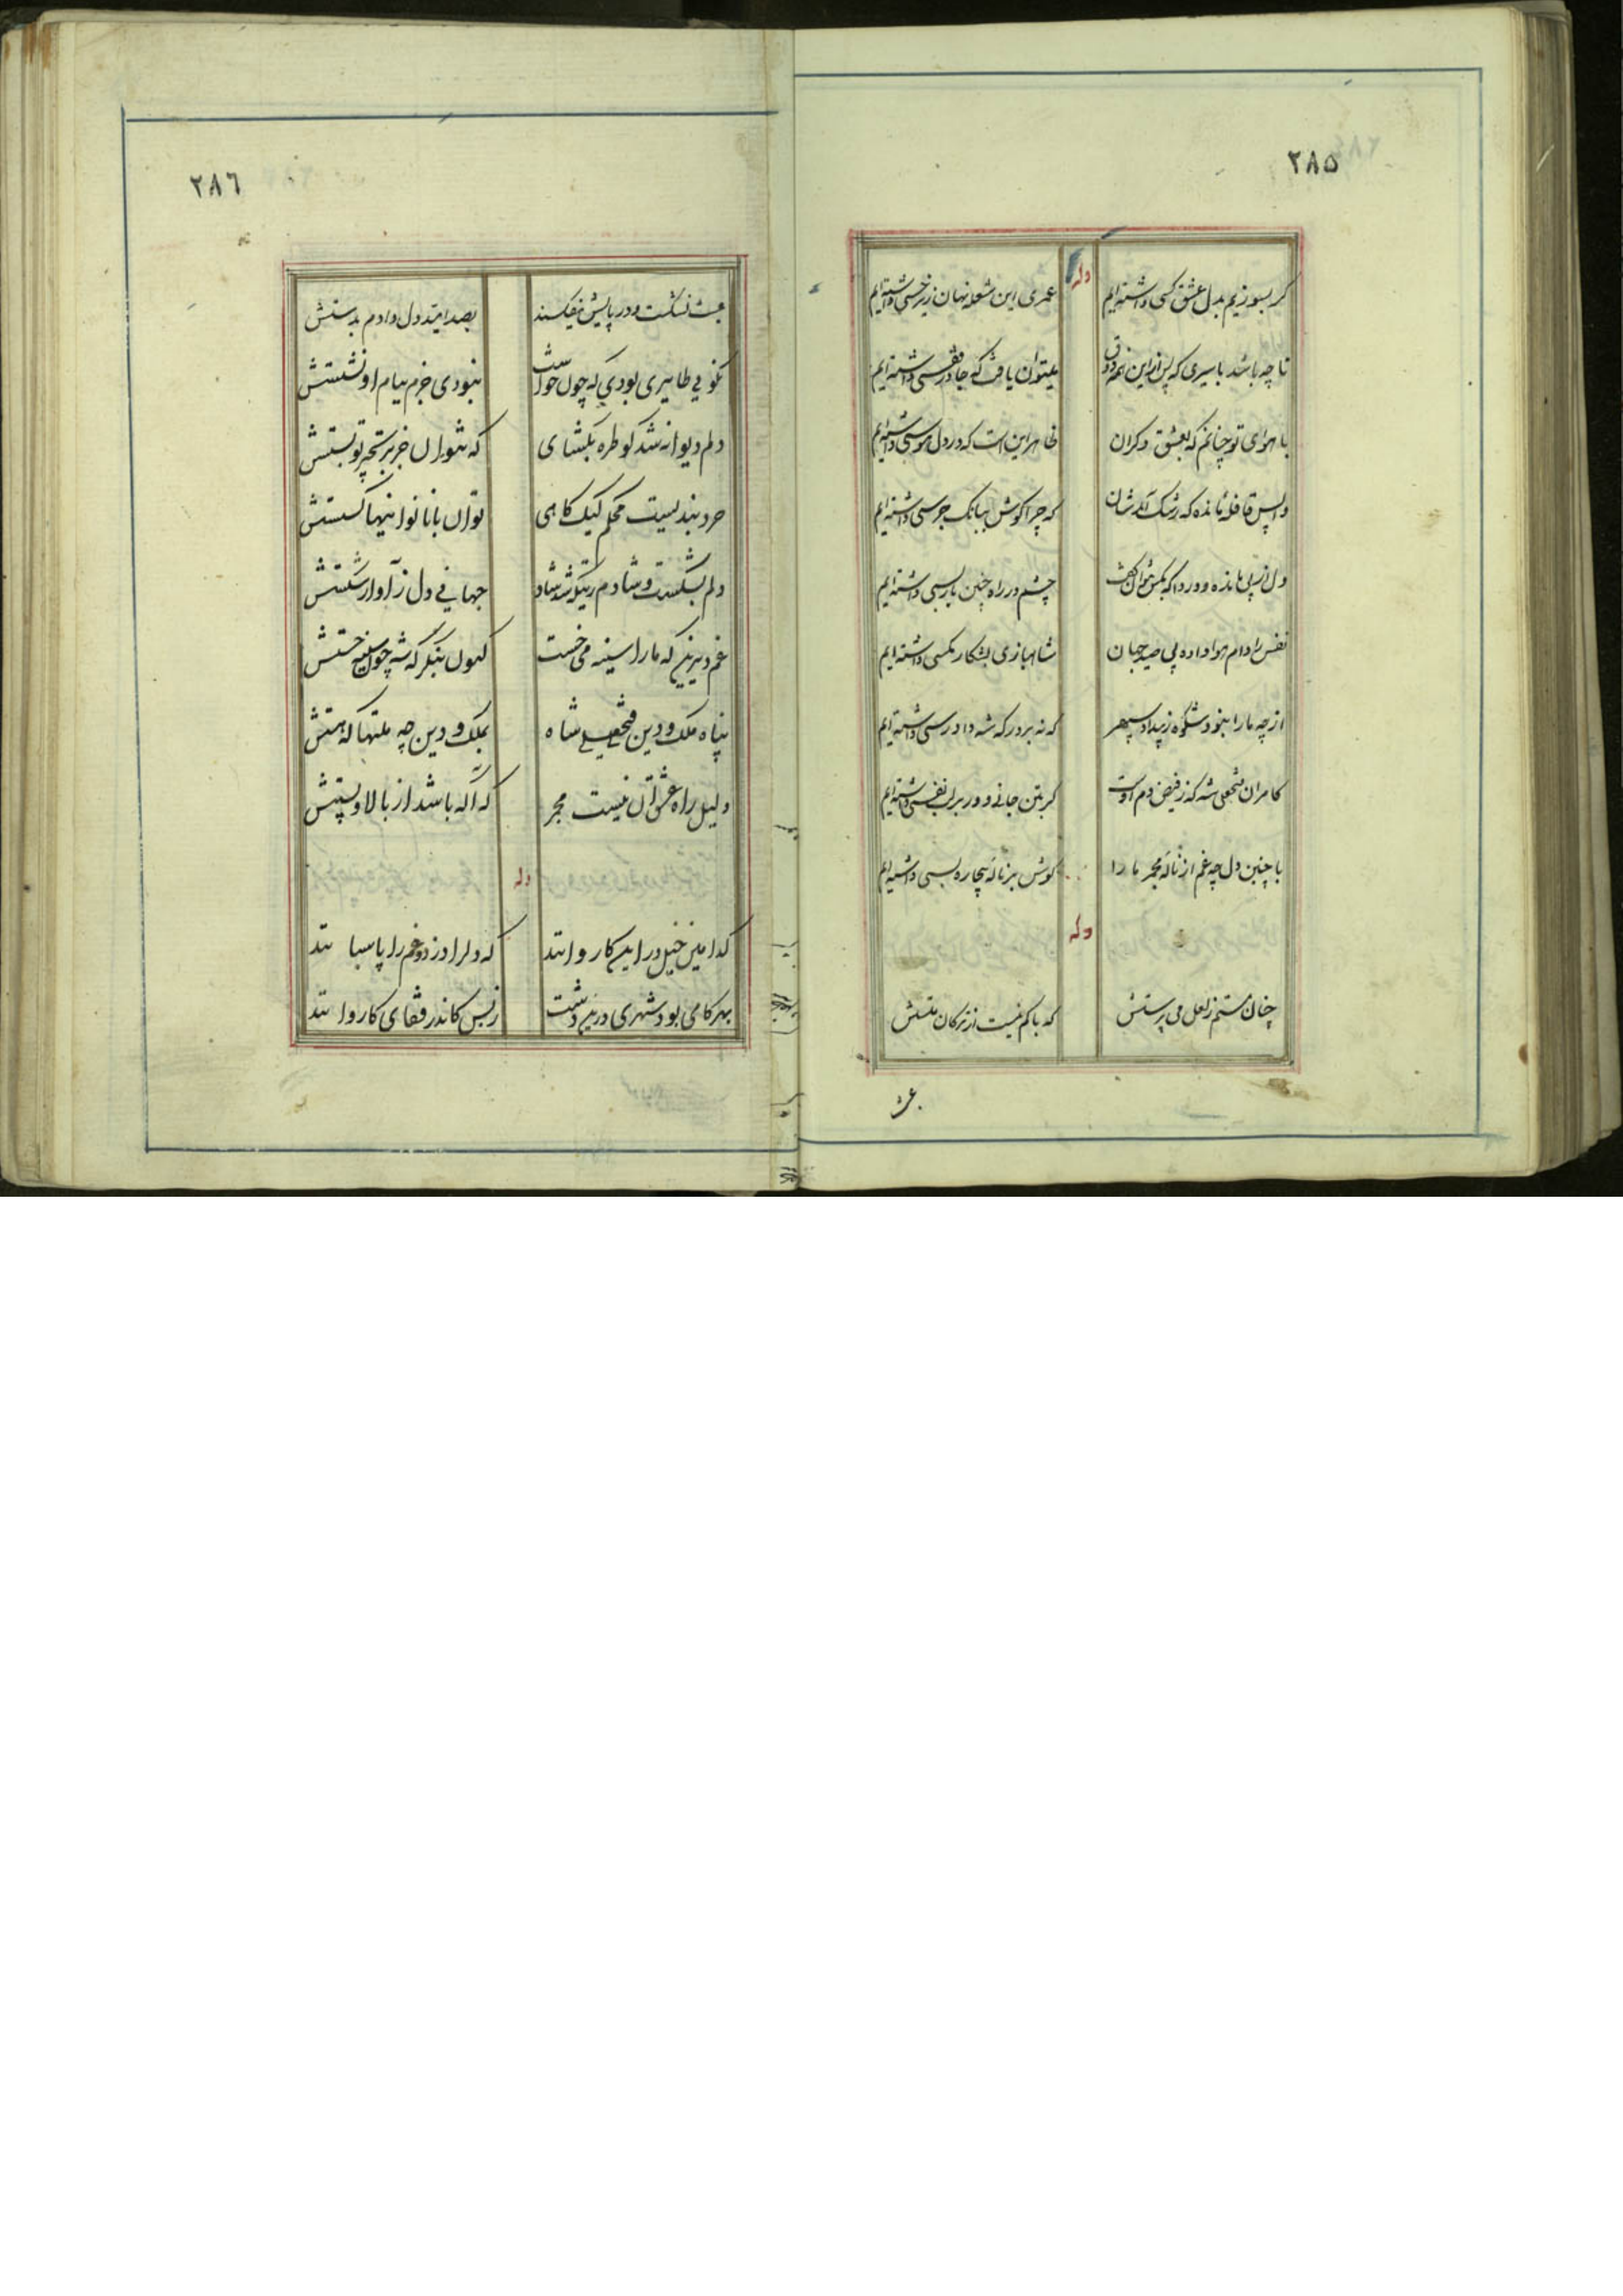 ٢٨٥
وله
گر بسوزیم بدل عشق کسی داشته‌ایم
عمری این شعله نهان زیر خسی داشته‌ایم
تا چه باشد باسیری که پس از این همه ذوق
میتوان یافت که جا در قفسی داشته‌ایم
با هوای تو چنانم که بعشق دگران
ظاهر این است که در دل هوسی داشته‌ایم
واپس قافله مانده که رشک آمدشان
که چرا گوش ببانگ جرسی داشته‌ایم
دل از پی مانده و دردا که بکس نتوان گفت
چشم در راه چنین بازپسی داشته‌ایم
نفس را دام هوا داده پی صید جهان
شاهبازی بشکار مگسی داشته‌ایم
از چه ما را نبود شکوه ز بیداد سپهر
که نه بر درگه شه دادرسی داشته‌ایم
کامران فتحعلی شه که ز فیض دم اوست
گر بتن جانی و در بر نفسی داشته‌ایم
با چنین دل چه غم از ناله مجمر ما را
گوش بر ناله بیچاره بسی داشته‌ایم
وله
چنان مستم ز لعل می پرستش
که باکم نیست از ترکان مستش
٢٨٦
عبث نشکست و در پایش نیفکند
بصد امید دل دادم بدستش
نکو فی طایری بودی که چون خواست
نبودی جزم ببام او نشستش
دلم دیوانه شد کو طره بگشای
که نتوان جز بزنجیر تو بستش
خرد بندیست محکم لیک کاهی
توان با ناتوانیها گسستش
دلم بشکست و شادم زینکه شد شاد
جهانی دل ز آواز شکستش
غم دیرین که ما را سینه می‌خست
کنون بنگر که شه چون سینه خستش
پناه ملک و دین فتحعلی شاه
بملک و دین چه منتها که هستش
دلیل راه عشق آن نیست مجمر
که آگه باشد از بالا و پستش
وله
کدامین خیل در این کاروانند
که دلرا دزد و غم را پاسبانند
بهر گامی بود شهری درین دشت
ز بس کاندر قفای کاروانند